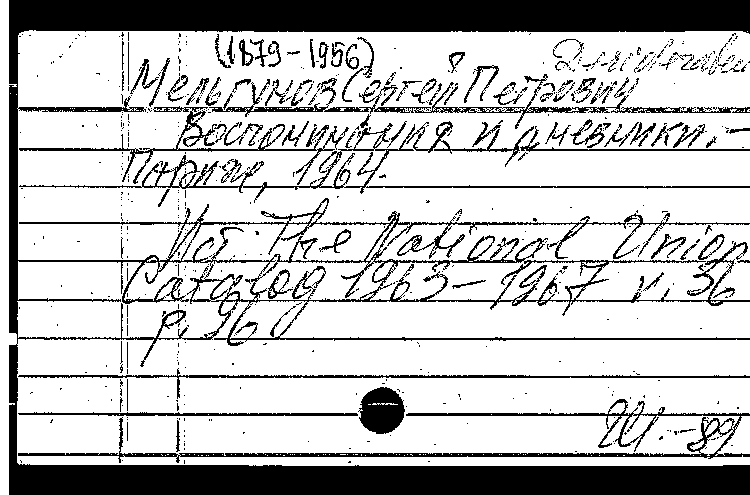 (1879-1956)
Мельгунов Сергей Петрович
Воспоминания и дневники.-
Париж, 1964.
Ист: The National Union
Catalog 1963-1967 v. 36
p. 96